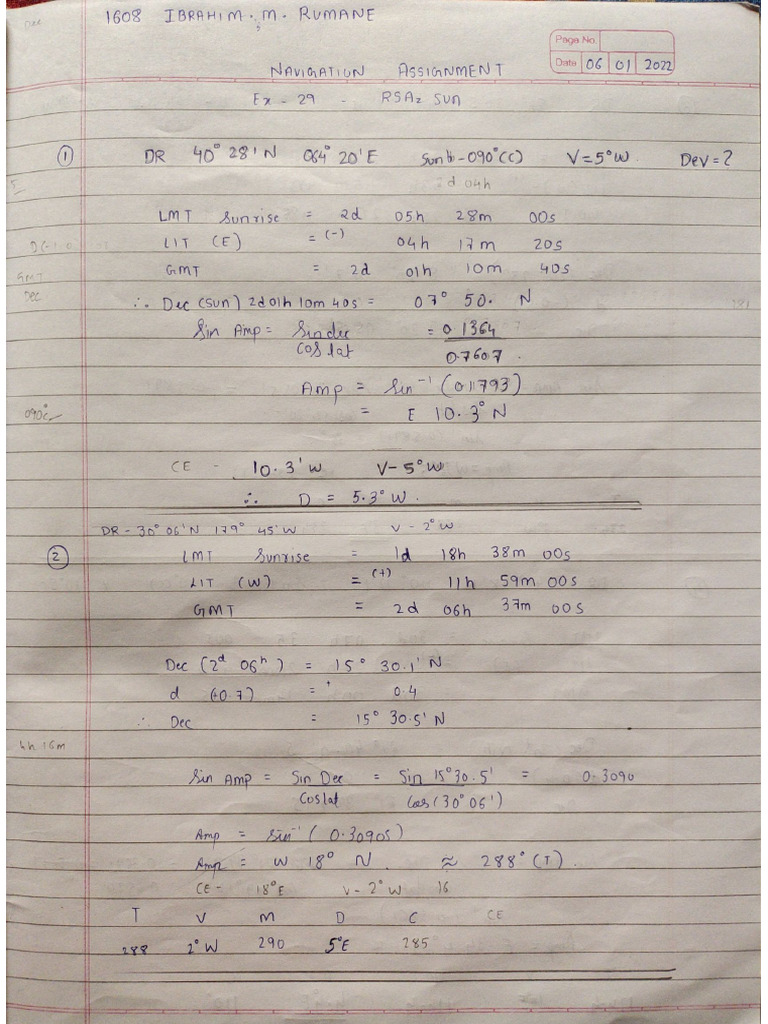 Dec
1608 IBRAHIM. M. RUMANE
Page No.
Date 06 01 2022
NAVIGATION ASSIGNMENT
Ex - 29 - RSAz SUN
① DR 40° 28' N 064° 20' E Sun b - 090° (C) V = 5° W. Dev = ?
2d 04h
LMT Sunrise = 2d 05h 28m 00s
LIT (E) = (-) 04h 17m 20s
GMT = 2d 01h 10m 40s
GMT
Dec
∴ Dec (Sun) 2d 01h 10m 40s = 07° 50. N
Sin Amp = Sin dec = 0.1364
Cos lat 0.7607.
Amp = Sin⁻¹ (0.1793)
= E 10.3° N
090c
CE - 10.3' W V - 5° W
∴ D = 5.3° W.
DR - 30° 06' N 179° 45' W V - 2° W
② LMT Sunrise = 1d 18h 38m 00s
LIT (W) = (+) 11h 59m 00s
GMT = 2d 06h 37m 00s
Dec (2d 06h) = 15° 30.1' N
d (+0.7) = + 0.4
∴ Dec = 15° 30.5' N
4h 16m
Sin Amp = Sin Dec = Sin 15° 30.5' = 0.3090
Cos lat Cos (30° 06')
Amp = Sin⁻¹ (0.3090s)
Amp = W 18° N. ≈ 288° (T).
CE - 18° E V - 2° W 16
T V M D C CE
288 2° W 290 5° E 285